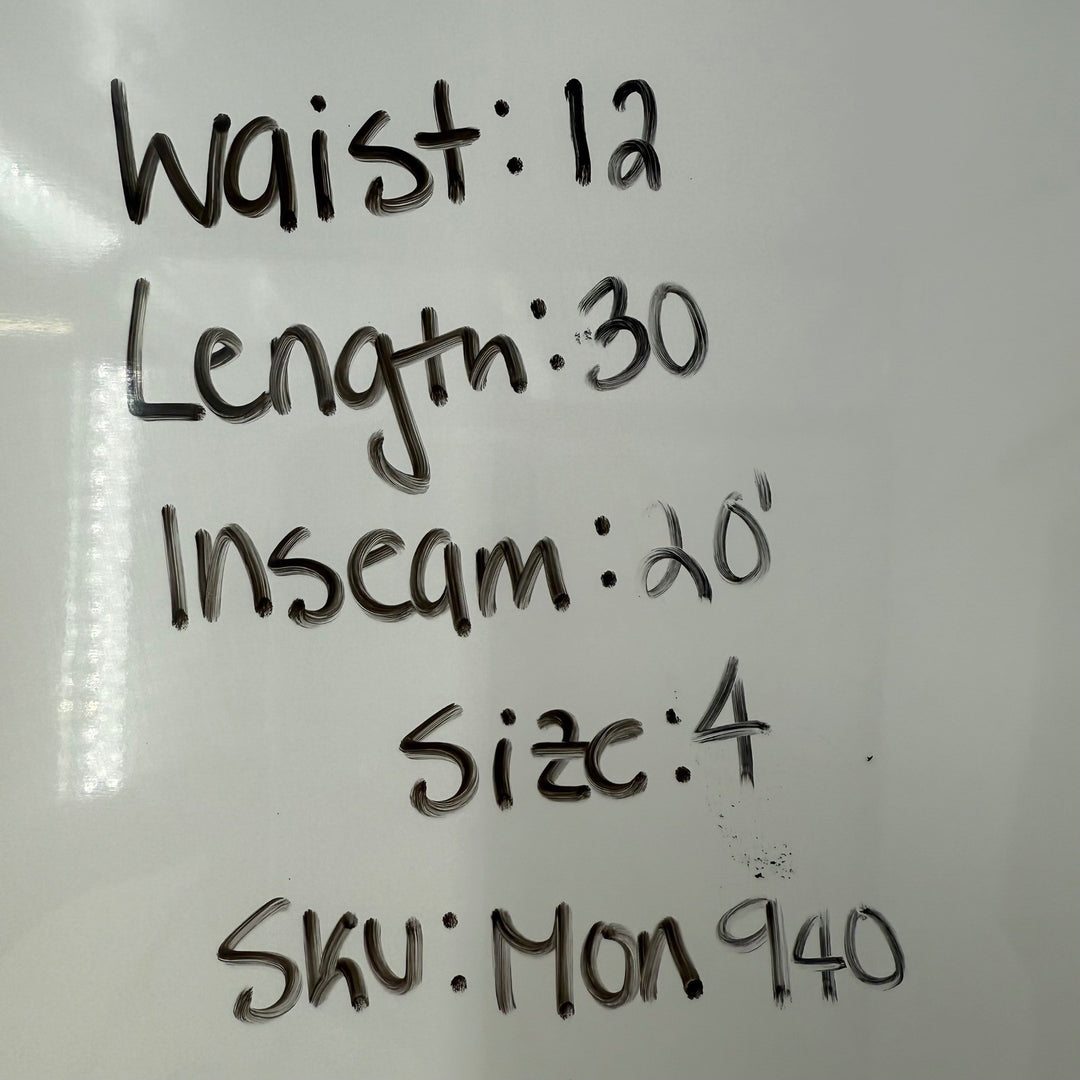 Waist: 12
Length: 30
Inseam: 20'
Size: 4
SKU: Mon 940